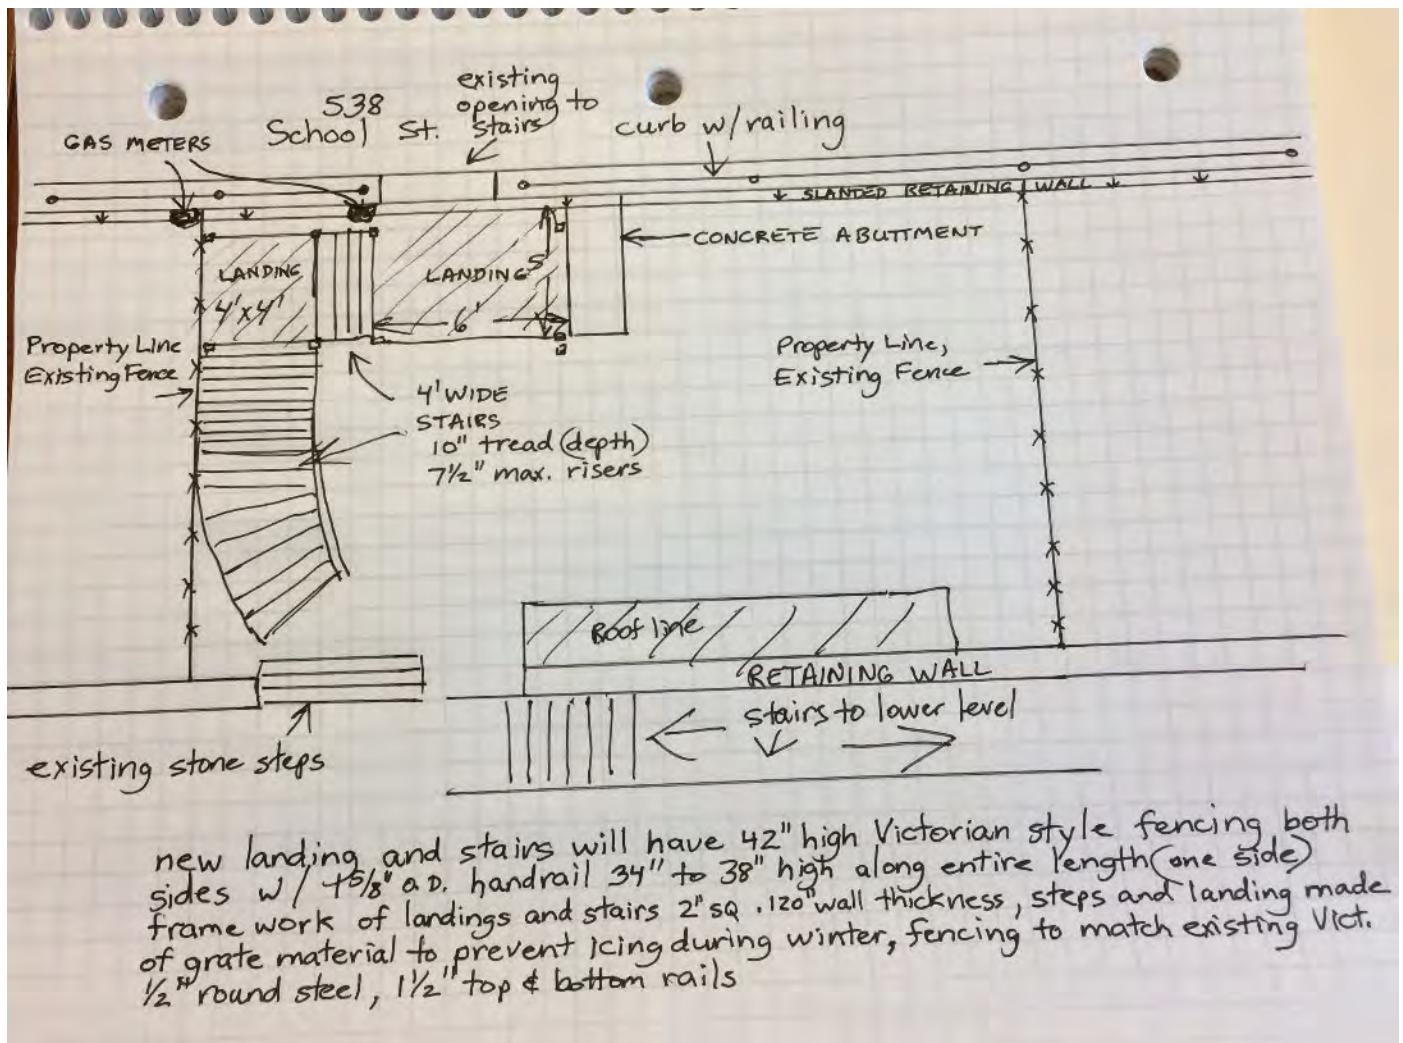 538
School St.
existing
opening to
stairs
curb w/railing
GAS METERS
SLANTED RETAINING WALL
CONCRETE ABUTTMENT
LANDING
4'x4'
LANDING
5'
6'
Property Line
Existing Fence
Property Line,
Existing Fence
4' WIDE
STAIRS
10" tread (depth)
7½" max. risers
Roof line
RETAINING WALL
stairs to lower level
existing stone steps
new landing and stairs will have 42" high Victorian style fencing both
sides w/ 1 5/8" O.D. handrail 34" to 38" high along entire length (one side)
frame work of landings and stairs 2" SQ .120" wall thickness, steps and landing made
of grate material to prevent icing during winter, fencing to match existing Vict.
½" round steel, 1½" top & bottom rails